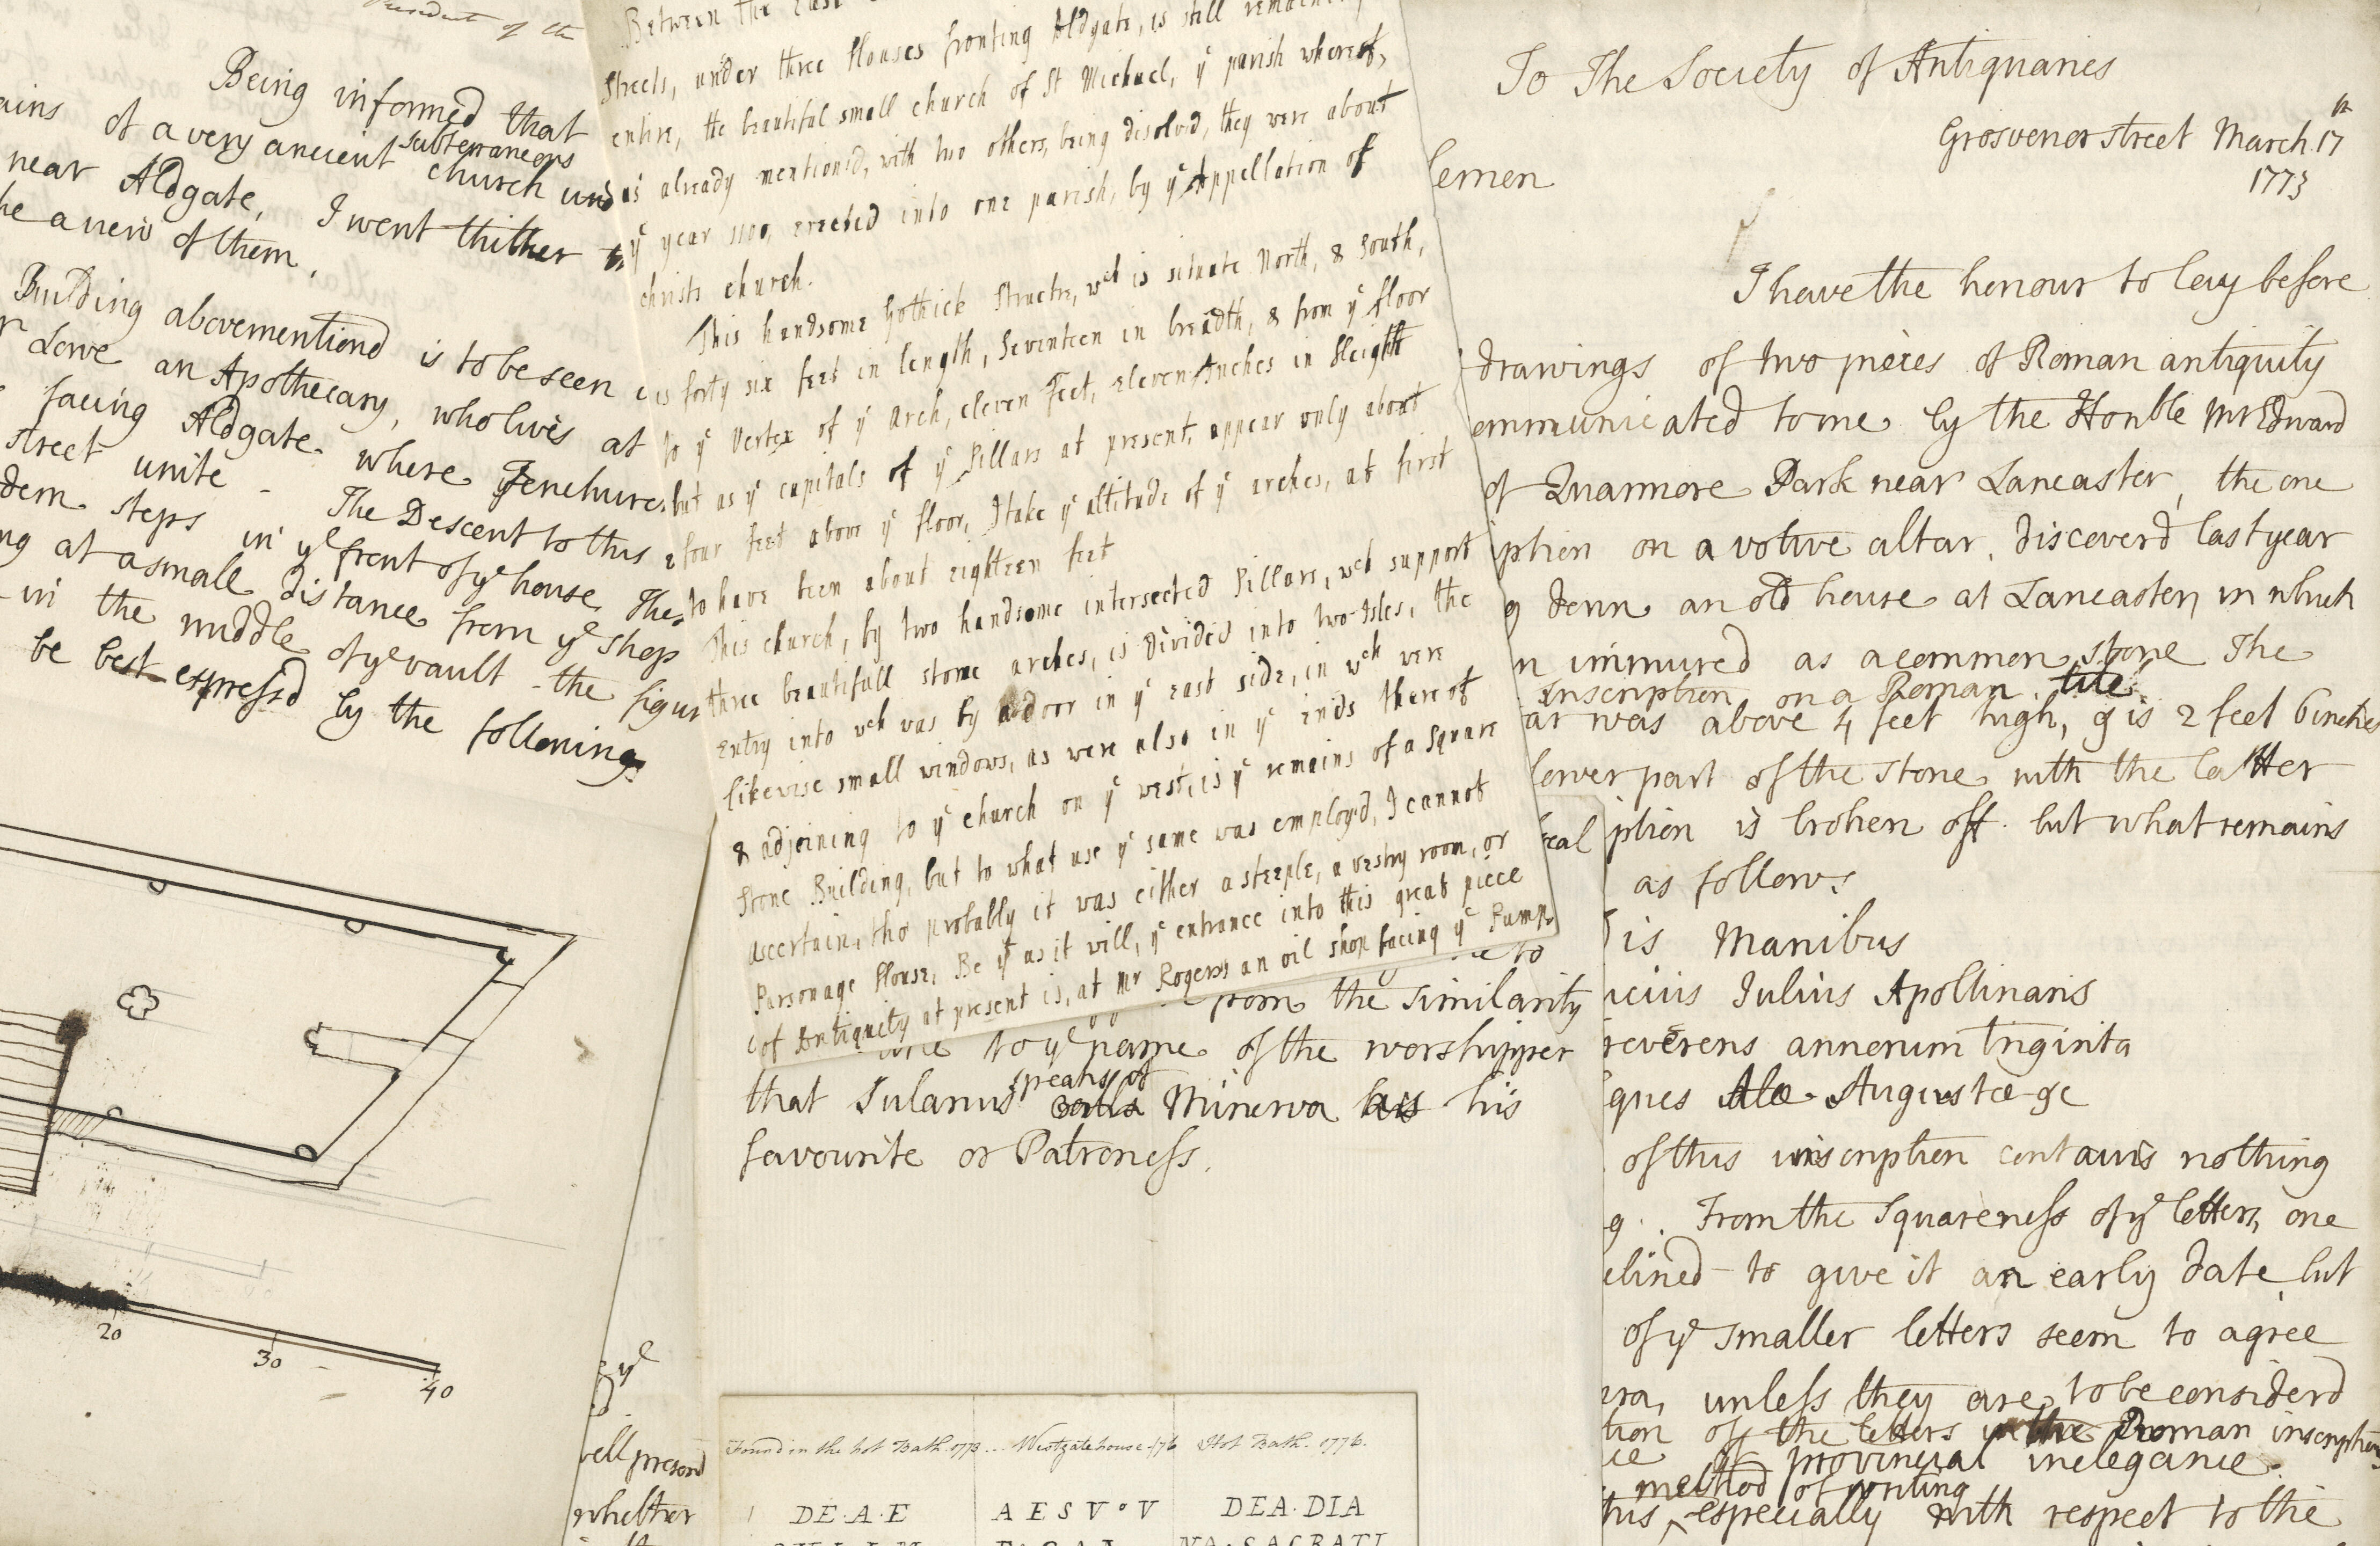 President of the
Being informed that
ains of a very ancient subterraneous church und
near Aldgate, I went thither to
he a view of them.
Building abovementiond is to be seen
Lowe an Apothecary, who lives at
facing Aldgate where Fenchurc
street unite - The Descent to this
dern steps in ye front of ye house. The
ng at a small distance from ye shop
in the middle of ye vault - the figur
be best expressd by the following.
20
30
40
Between the East
Streets, under three Houses fronting Aldgate, is still remaining
entire, the beautiful small church of St Michael, ye parish whereof,
as already mentioned, with two others, being disolved, they were about
ye year 1100, erected into one parish, by ye Appellation of
christs church.
This handsome Gothick Structre, wch is situate North, & South,
is forty six feet in length, Seventeen in breadth, & from ye floor
to ye Vertex of ye Arch, eleven Feet, eleven Inches in Height
but as ye capitals of ye Pillars at present, appear only about
four feet above ye floor, I take ye altitude of ye arches, at first
to have been about eighteen feet
This church, by two handsome intersected Pillars, wch support
three beautifull stone arches, is Divided into two Isles, the
Entry into wch was by a door in ye east side, in wch were
likewise small windows, as were also in ye ends thereof
& adjoining to ye church on ye west, is ye remains of a Square
Stone Building, but to what use ye same was employd, I cannot
ascertain, tho probably it was either a steeple, a vestry room, or
Parsonage House, Be yt as it will, ye entrance into this great piece
of Antiquity at present is, at Mr Rogers's an oil shop facing ye Pump.
to
from the similarity
to ye name of the worshipper
that Sulanus speaks of calls Minerva his his
favourite or Patroness.
ye
vell preservd
whether
Found in the hot Bath. 1773 ... Westgate house. 176 Hot Bath. 1776.
DE.A.E AESV°V DEA.DIA
NA.SACRATI
To The Society of Antiquaries
Grosvenor street March 17th
1773
lemen
I have the honour to lay before
drawings of two pieces of Roman antiquity
ommunicated to me by the Honble Mr Edward
of Quarmore Park near Lancaster, the one
iption on a votive altar, discoverd last year
g down an old house at Lancaster, in which
n immured as a common stone The
Inscription on a Roman tile.
ar was above 4 feet high, & is 2 feet 6 inches
lower part of the stone with the latter
iption is broken off. but what remains
eal
as follows
is Manibus
ucius Julius Apollinaris
reverens annorum triginta
ques Alæ Augustæ &c
of this inscription contains nothing
g. From the Squareness of ye letters, one
clined to give it an early date, but
of ye smaller letters seem to agree
æra, unless they are to be considerd
tion of the letters in the Roman inscription
of provincial inelegance.
method of writing
this, especially with respect to the